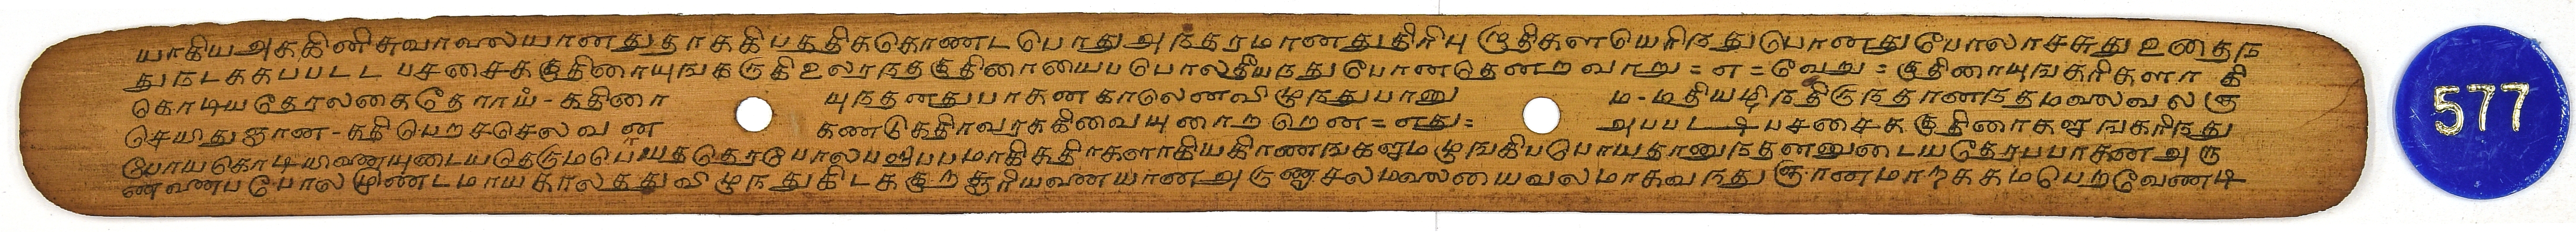 யாகிய அககினிசுவாலையானதுதாககிபததிககொணடபொதுஅநதரமானதுதிரிபு ருதிகளயெரிநதுபொனதுபோலாசசுதுஉதைந
துநடககபபடட பசசைககுதிரையுஙகருகிஉலரநதகுதிரையைபபொலததீயநதுபோனதெனறவாறு = எ = வேறு = குதிரையுஙகரிகளாகி
கொடியதேரலகைதேராய் - கதிரை யுநதனதுபாகன காலெனவிழுநதுபானு ம - மதியழிநதிருநதானநதமலைவல ஞ
செயது ஞான - கதிபெறசசெலவன கணடுகதிரவரககிவையுரைறறென = எது = அபபடி பசசைககுதிரைகளுஙகரிநது
போயகொடியிணையுடையதெருமபெயததெரபோலபஷபபமாகிகதிரகளாகியகிரணஙகளுமழுஙகிபபோயதானுநதனனுடையதேரபபாகன அரு
ணணபபோலமுணடமாயகாலததுவிழுநதுகிடககுறசூரியனையான அருணாசலமலையைவலமாகவநதுஞானமாரககமபெறவேணடி
577